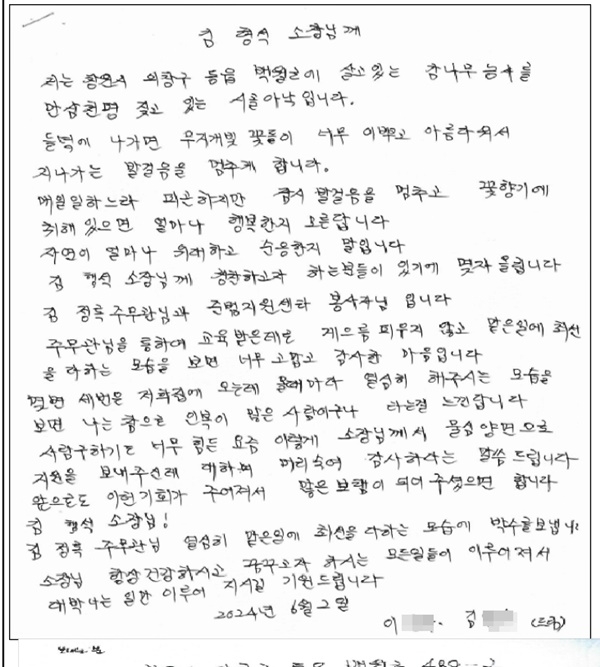 김 형석 소장님께
저는 창원시 의창구 동읍 벽월르이 살고있는 감나무 농사를
만삼천평 짖고 있는 시골아낙입니다.
들녘에 나가면 무지개빛 꽃들이 너무 이쁘고 아름다워서
지나가는 발걸음을 멈추게 합니다.
매일일하느라 피곤하지만 잠시 발걸음을 멈추고 꽃향기에
취해있으면 얼마나 행복한지 모른답니다
자연이 얼마나 위대하고 순응한지 말입니다
김 형석 소장님께 칭찬하고자 하는분들이 있기에 몇자 올립니다
김 정록주무관님과 준법지원센타 봉사자님 입니다
주무관님을 통하여 교육받은데로 게으름 피우지 않고 맡은일에 최선
을 다하는 모습을 보면 너무 고맙고 감사한 마음입니다
몇번 세번은 저희집에 오는데 올때마다 열심히 해주시는 모습을
보면 나는 참으로 인복이 많은 사람이구나 라는걸 느낀답니다
사람구하기도 너무 힘든 요즘 이렇게 소장님께서 물심양면으로
지원을 보내주신데 대하여 머리숙여 감사하다는 말씀드립니다
앞으로도 이런기회가 주어져서 많은 보탬이 되어 주셨으면 합니다
김 형석 소장님!
김 정록 주무관님 열심히 맡은일에 최선을다하는 모습에 박수를보냅니다
소장님 항상건강하시고 꿈꾸고자 하시는 모든일들이 이루어져서
대박나는 일만 이루어 지시길 기원드립니다
2024년 6월 2일
이 김 (드림)